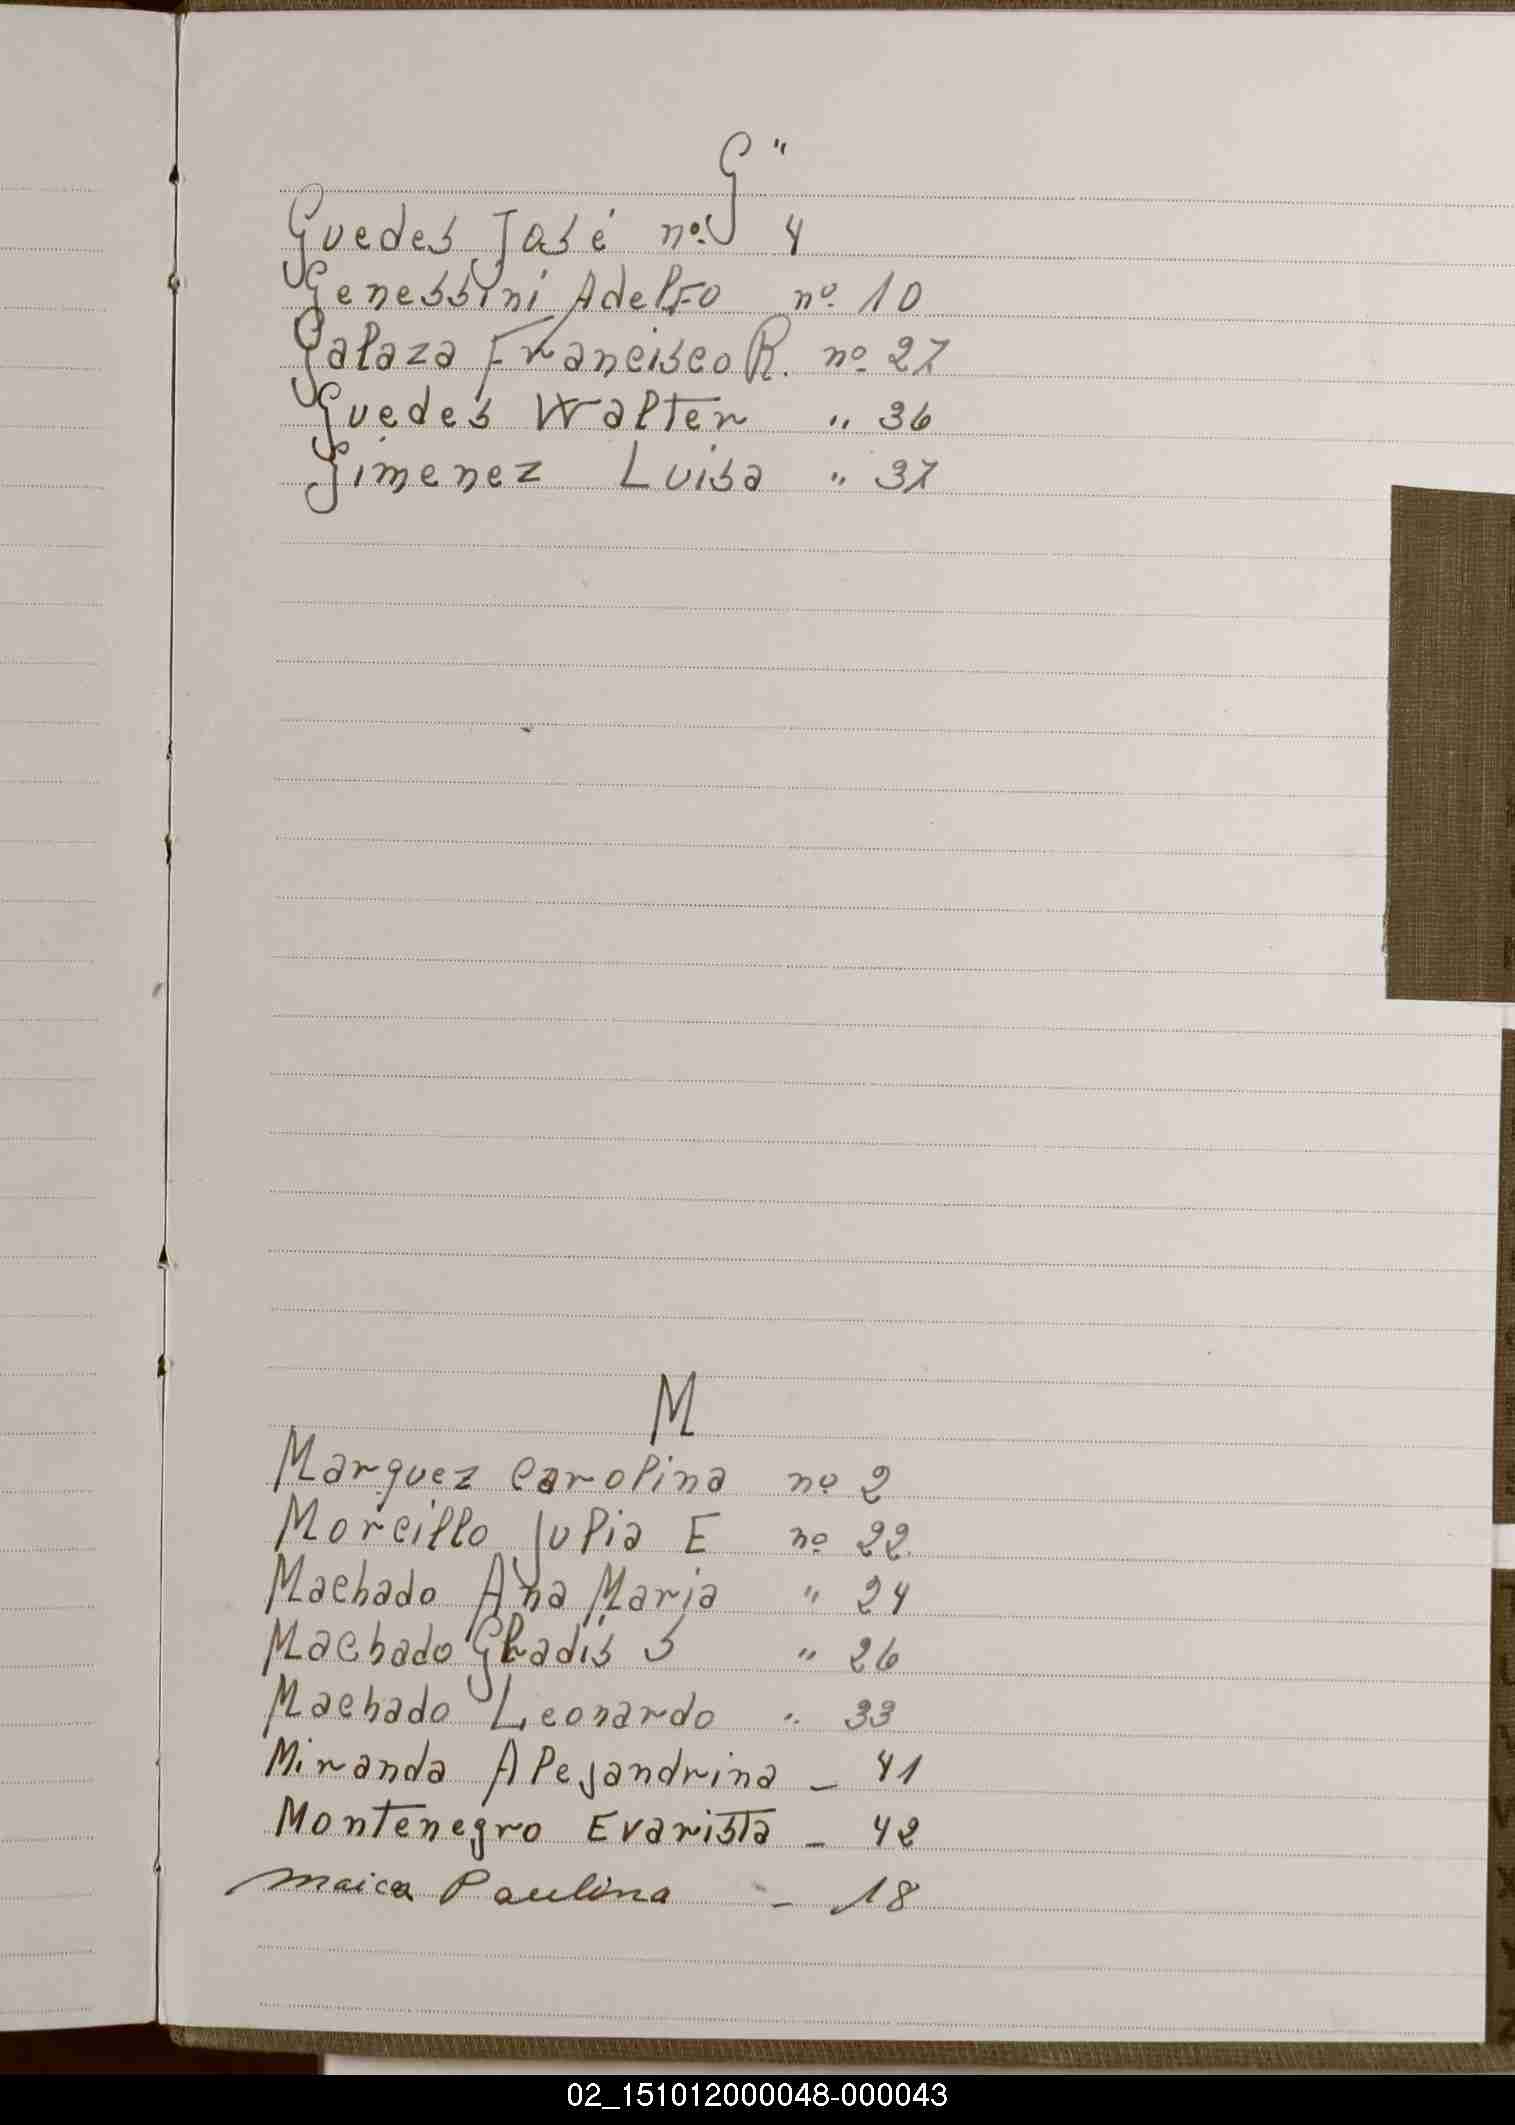 G"
Guedes José nº. 4
Genessini Adelfo nº 10
Galaza Francisco R. nº 27
Guedes Walter " 36
Gimenez Luisa " 37
M
Marquez Carolina nº 2
Morcillo Julia E nº 22
Machado Ana Maria " 24
Machado Gladis S " 26
Machado Leonardo " 33
Miranda Alejandrina - 41
Montenegro Evarista - 42
Maica Paulina - 18
02_151012000048-000043